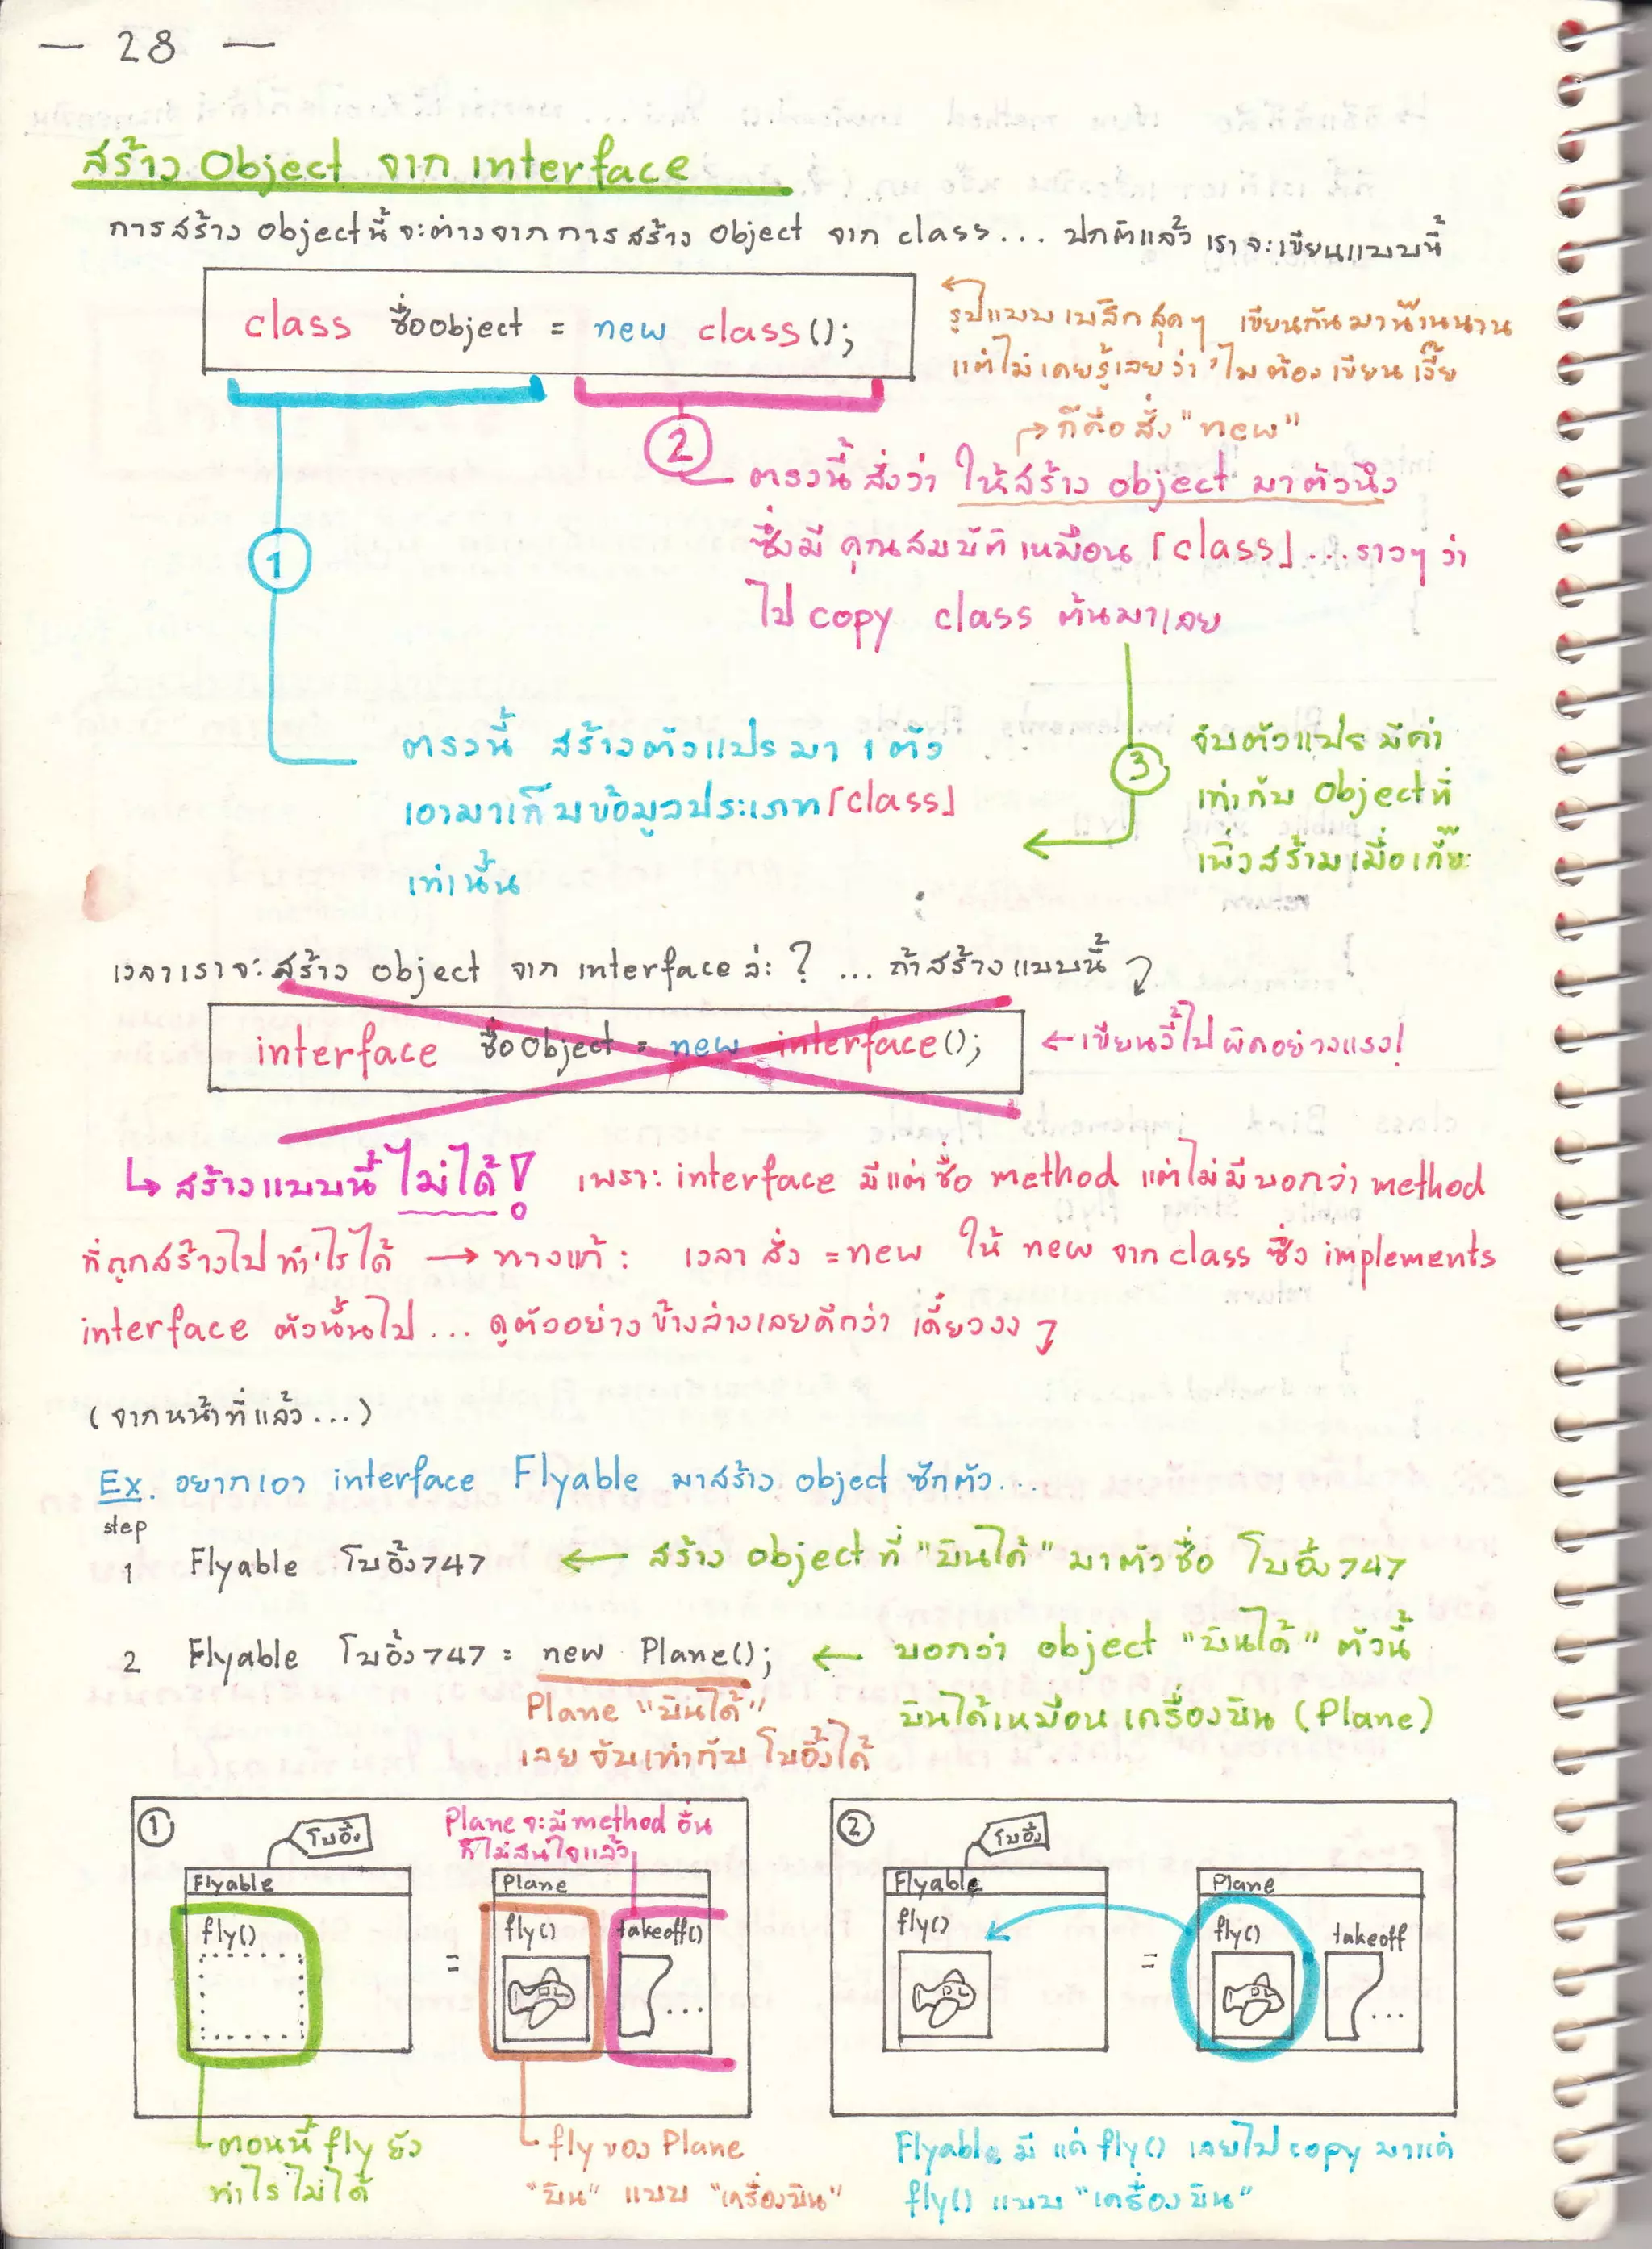 — 28 —
สร้าง Object จาก interface
การสร้าง object นี้ จะต่างจากการสร้าง object จาก class... ปกติแล้ว เราจะเขียนแบบนี้
class ชื่อobject = new class();
รูปแบบเบสิกสุดๆ เขียนกันมาน๊านนาน
แต่ไม่เคยรู้เลยว่า 'ไมต้องเขียนเงี๊ย
→ ก็คือสั่ง "new"
2
ตรงนี้สั่งว่า ให้สร้าง object มาตัวนึง
ซึ่งมีคุณสมบัติเหมือน「class」...ราวๆว่า
ไป copy class ต้นมาเลย
1
ตรงนี้ สร้างตัวแปรมา 1 ตัว
เอามาเก็บข้อมูลประเภท「class」
เท่านั้น
3
จับตัวแปรมีค่า
เท่ากับ Object ที่
เพิ่งสร้างเมื่อกี๊
เวลาเราจะสร้าง object จาก interface ล่ะ? ... ถ้าสร้างแบบนี้
interface ชื่อObject = new interface();
← เขียนงี้ไปผิดอย่างแรง!
↳ สร้างแบบนี้ ไม่ได้! เพราะ interface มีแต่ชื่อ method แต่ไม่มีบอกว่า method
ที่ถูกสร้างไปทำ'ไรได้ → ทางแก้ : เวลาสั่ง =new ให้ new จาก class ซึ่ง implements
interface ตัวนั้นไป ... ดูตัวอย่างข้างล่างเลยดีกว่า เดี๋ยวงง
(จากหน้าที่แล้ว...)
Ex. อยากเอา interface Flyable มาสร้าง object ซักตัว...
step
1 Flyable โบอิ้ง747 ← สร้าง object ที่ "บินได้" มาตัวชื่อ โบอิ้ง747
2 Flyable โบอิ้ง747 = new Plane(); ← บอกว่า object "บินได้" ตัวนี้
บินได้เหมือนเครื่องบิน (Plane)
Plane "บินได้"
เลยจับเท่ากับโบอิ้งได้
1
โบอิ้ง
Plane จะมี method อื่น
ก็ไม่สนใจแล้ว
Flyable
fly()
=
Plane
fly()
takeoff()
...
2
โบอิ้ง
Flyable
fly()
=
Plane
fly()
takeoff
...
ตอนนี้ fly ยัง
ทำไรไม่ได้
fly ของ Plane
"บิน" แบบ "เครื่องบิน"
Flyable มีแค่ fly() เลยไป copy มาแค่
fly() แบบ "เครื่องบิน"